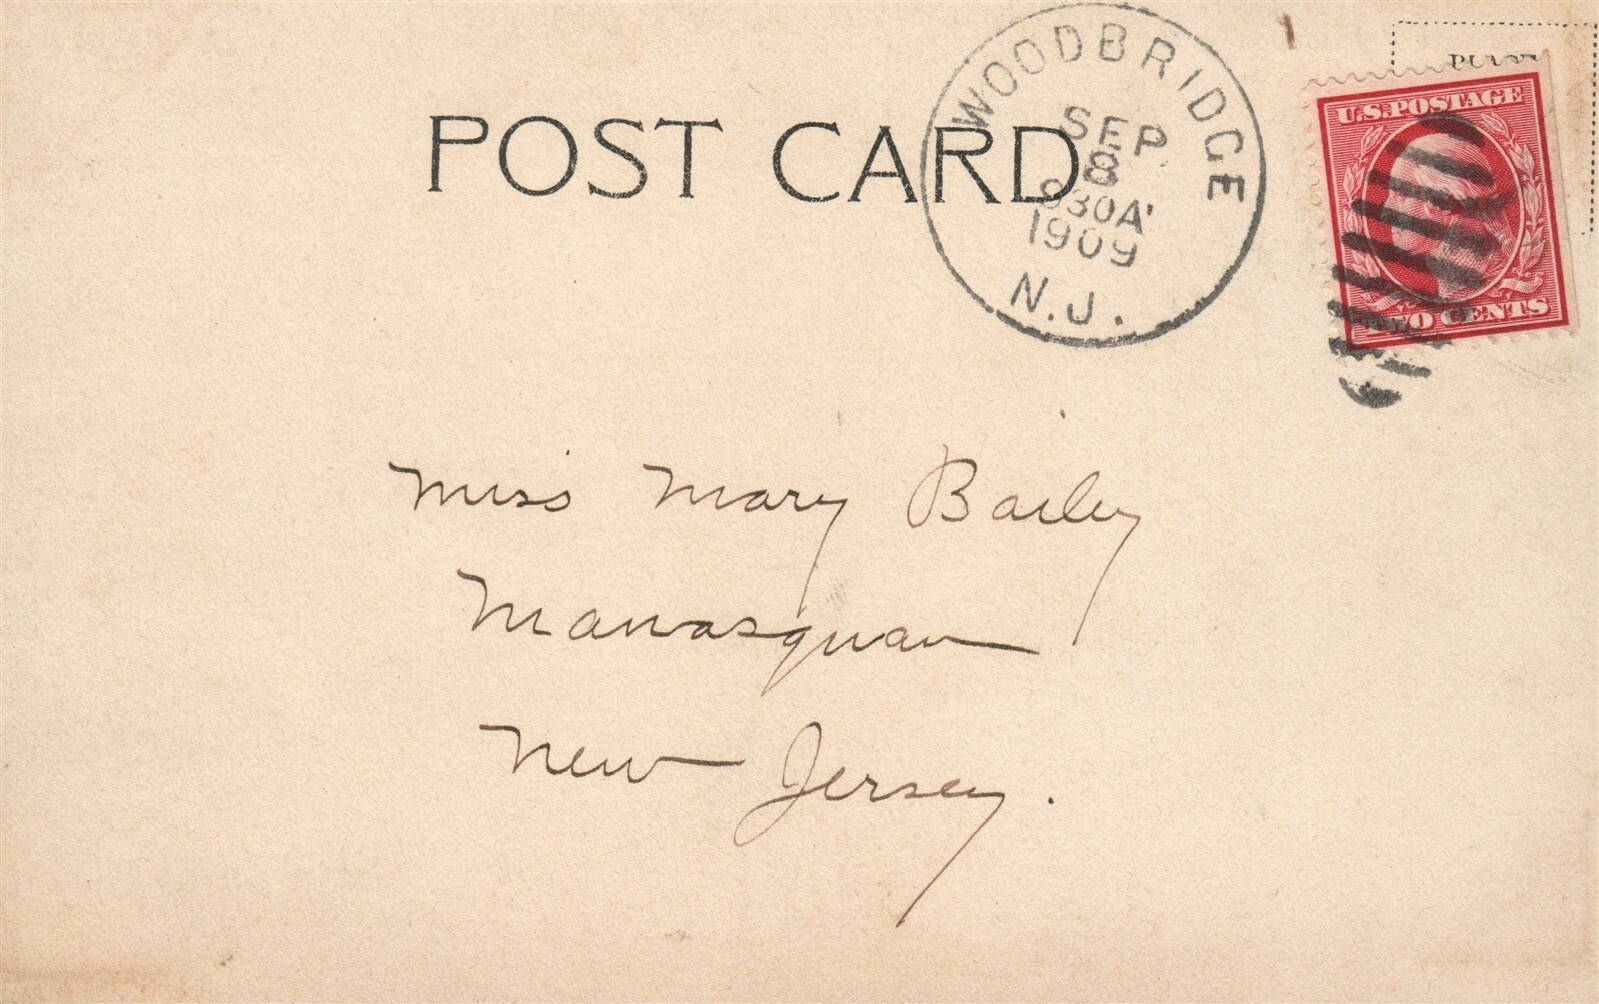 POST CARD
WOODBRIDGE
SEP
8
830A
1909
N.J.
U.S.POSTAGE
TWO CENTS
Miss Mary Bailey
Manasquan
New Jersey.